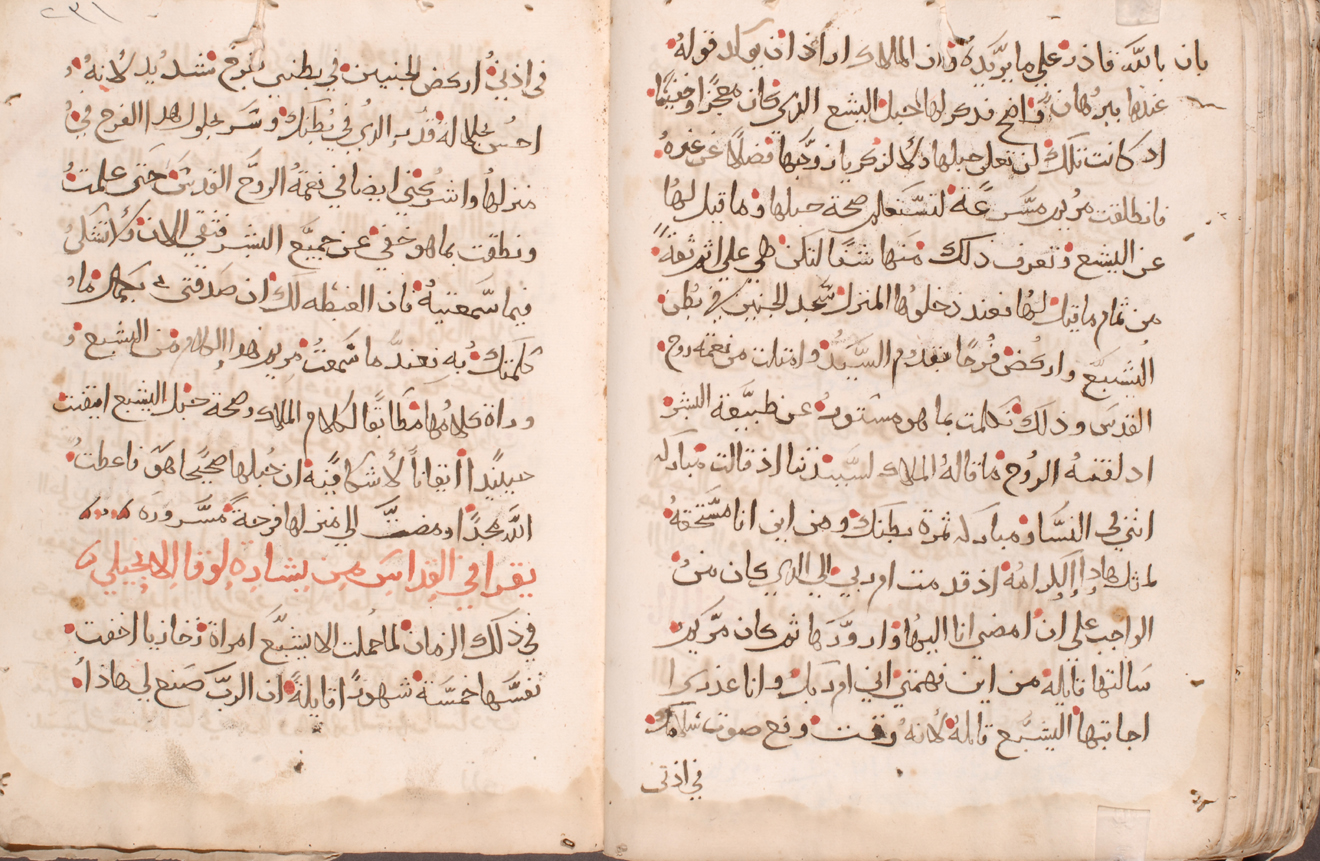 بان بالله قادر على ما يريده وان الملاك اراد ان يوكد قوله
عندها ببرهان واضح فذكر لها حبل اليشبع الذي كان معجزا وخفيا
اذ كانت تلك لن تعلم حبلها الا لزكريا زوجها فضلا عن غيره
فانطلقت مريم مسرعة لتستعلم صحة حبلها وما قيل لها
عن اليشبع وتعرف ذلك منها شفاها لتكن هي على اثر ثقة
من تمام ما قيل لها فعند دخولها المنزل سجد الجنين في بطن
اليشبع واركض فرحا بقدوم السيد وامتلت من نعمة روح
القدس وذلك تكلمت بما هو مستور عن طبيعة البشر
اذ لقنه الروح ما قاله الملاك لسيدتنا اذ قالت مباركه
انتي في النسا ومباركه ثمرة بطنك ومن اين انا مستحقة
لمثل هاذا الكرامه اذ قدمت ام ربي الي الذي كان من
الواجب على ان امضي انا اليها وازورها ثم كان مريم
سالتها قايله من اين فهمتي اني ام ربك وانا عذري
اجابتها اليشبع قايله لانه وقت وقع صوت سلامك
في اذني
في اذني اركض الجنين في بطني بفرح شديد لانه
احس بحلاله قدر الذي في بطنك وسر بحلول هذا الفرح في
منزلها واشركتني ايضا في نعمة الروح القدس حتى علمت
ونطقت بما هو خفي عن جميع البشر فثقي الان ولا تشكي
فيما سمعتيه فان الغبطه لك ان صدقتي بكمال ما
كلمتك به فعند ما سمعت مريم هذا الكلام من اليشبع و
وراة كلامها مطابقا لكلام الملاك وصحة حبل اليشبع امتلت
حينيذا ايقانا لا شكا فيه ان حبلها صحيحا هو فاعطت
الله مجدا ومضت الى منزلها فرحة مسرورة
يقرا في القداس من بشارة لوقا الانجيلي
في ذلك الزمان لما حملت الايشبع امراة زخاريا اخفت
نفسها خمسة شهورا قايلة ان الرب صنع لي هاذا